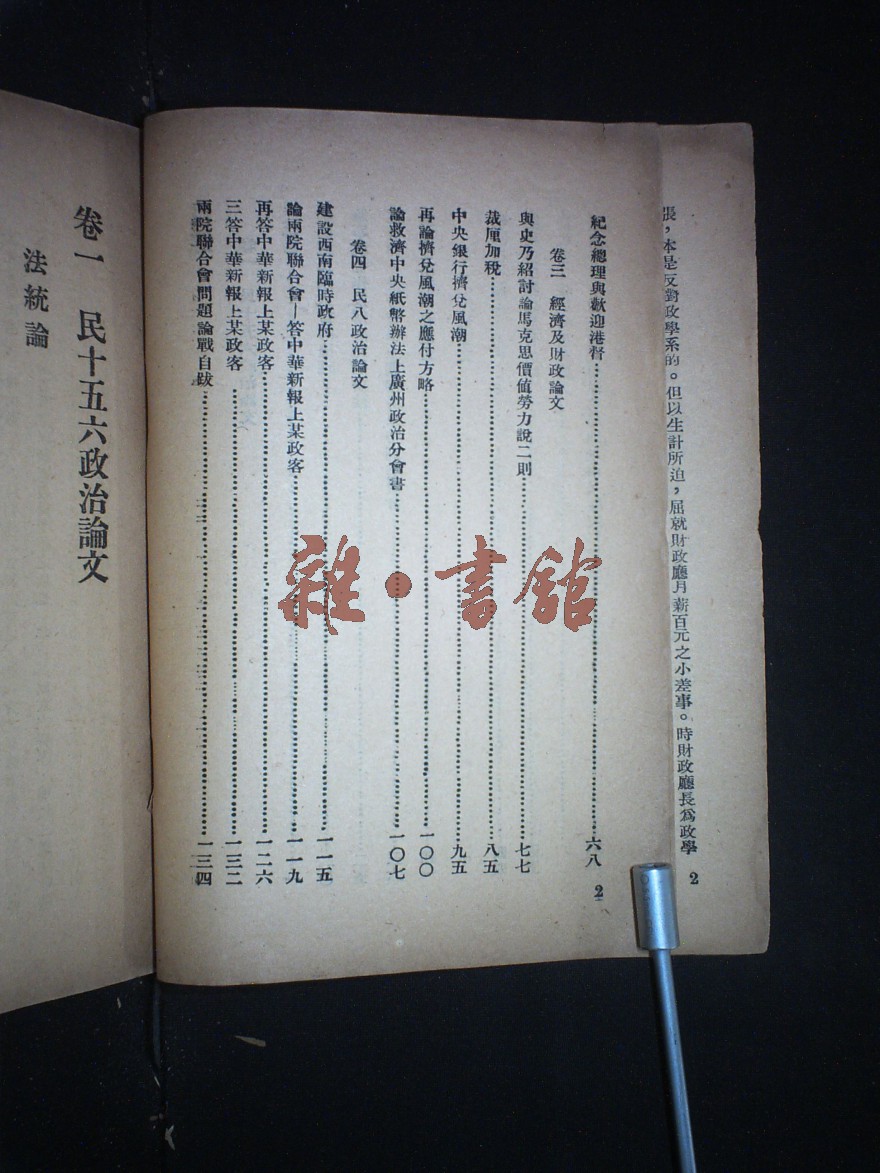 張，本是反對政學系的。但以生計所迫，屈就財政廳月薪百元之小差事。時財政廳長爲政學
2
紀念總理與歡迎港督……六八
卷三　經濟及財政論文
與史乃紹討論馬克思價值勞力說二則……七七
裁厘加稅……八五
中央銀行擠兌風潮……九五
再論擠兌風潮之應付方略……一〇〇
論救濟中央紙幣辦法上廣州政治分會書……一〇七
卷四　民八政治論文
建設西南臨時政府……一一五
論兩院聯合會—答中華新報上某政客……一一九
再答中華新報上某政客……一二六
三答中華新報上某政客……一三二
兩院聯合會問題論戰自跋……一三四
2
卷一　民十五六政治論文
法統論
雜·書館